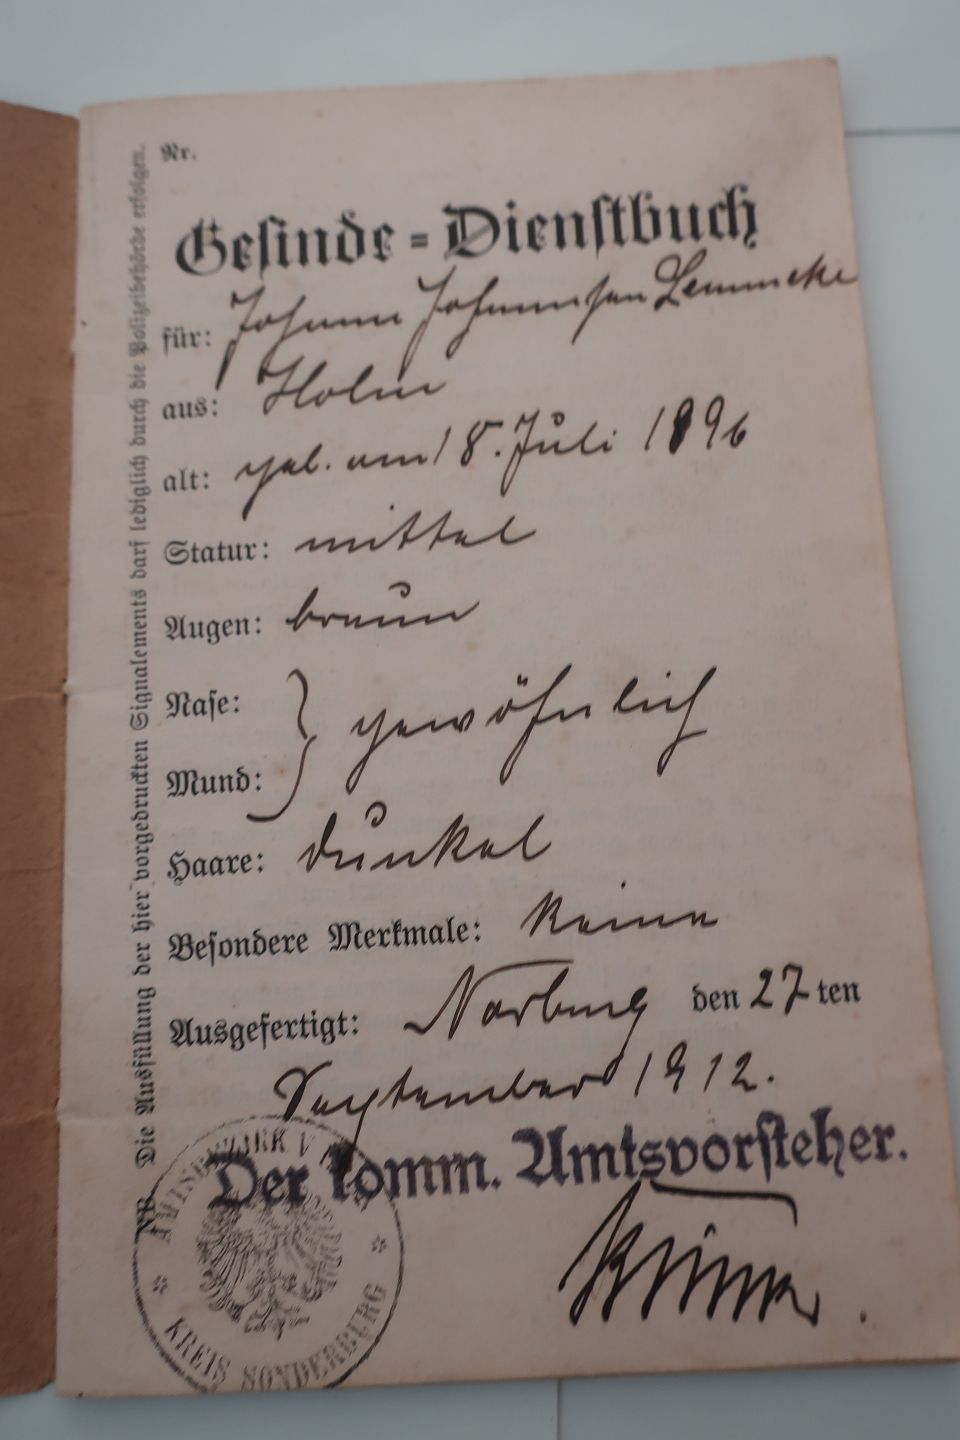 Nr.
Gesinde=Dienstbuch
für: Johann Johannsen Lemmcke
aus: Holm
alt: geb. am 18. Juli 1896
Statur: mittel
Augen: braun
Nase:
Mund: } gewöhnlich
Haare: dunkel
Besondere Merkmale: keine
Ausgefertigt: Norburg den 27ten
September 1912.
Der komm. Amtsvorsteher.
AMTSBEZIRK
KREIS SONDERBURG
NB. Die Ausfüllung der hier vorgedruckten Signalements darf lediglich durch die Polizeibehörde erfolgen.